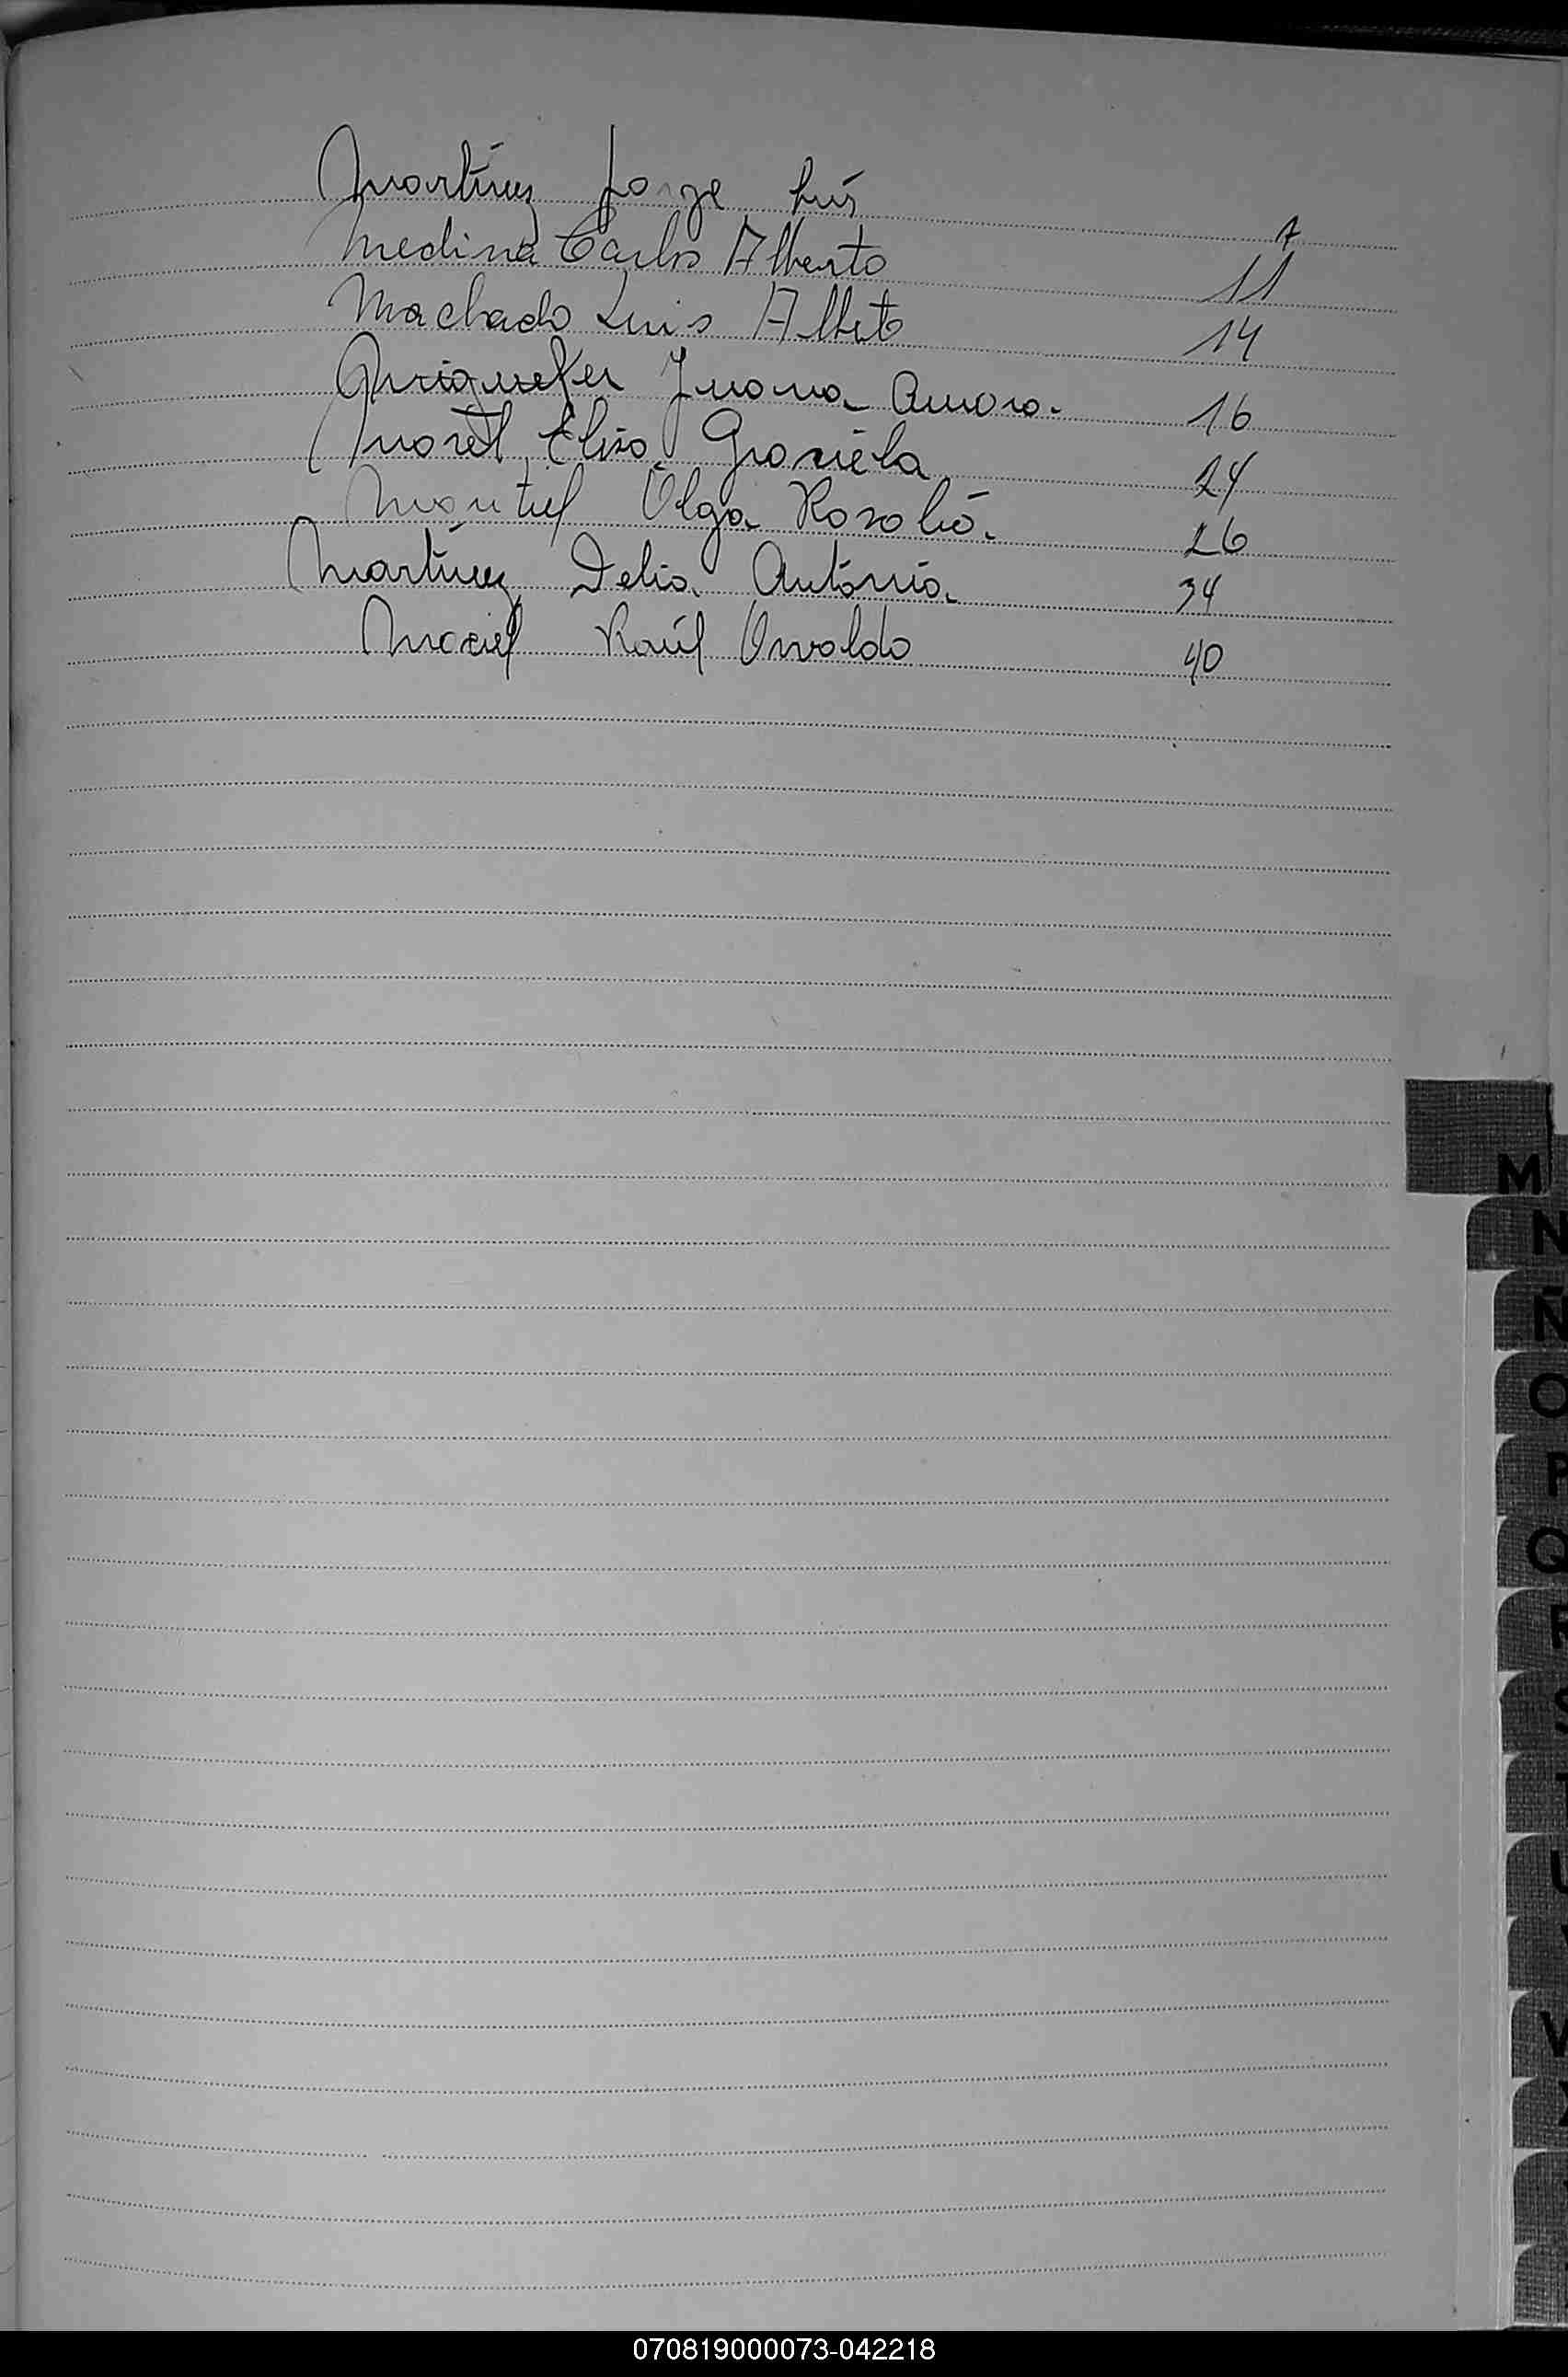 Martínez Jorge Luís 7
Medina Carlos Alberto 11
Machado Luis Albeto 14
Juana 16
Moret Elisa Graciela 24
Montiel Olga Rosalía. 26
Martínez Delia Antónia. 34
Maciel Raúl Osvaldo 40
M
N
Ñ
O
P
Q
R
S
T
U
V
070819000073-042218